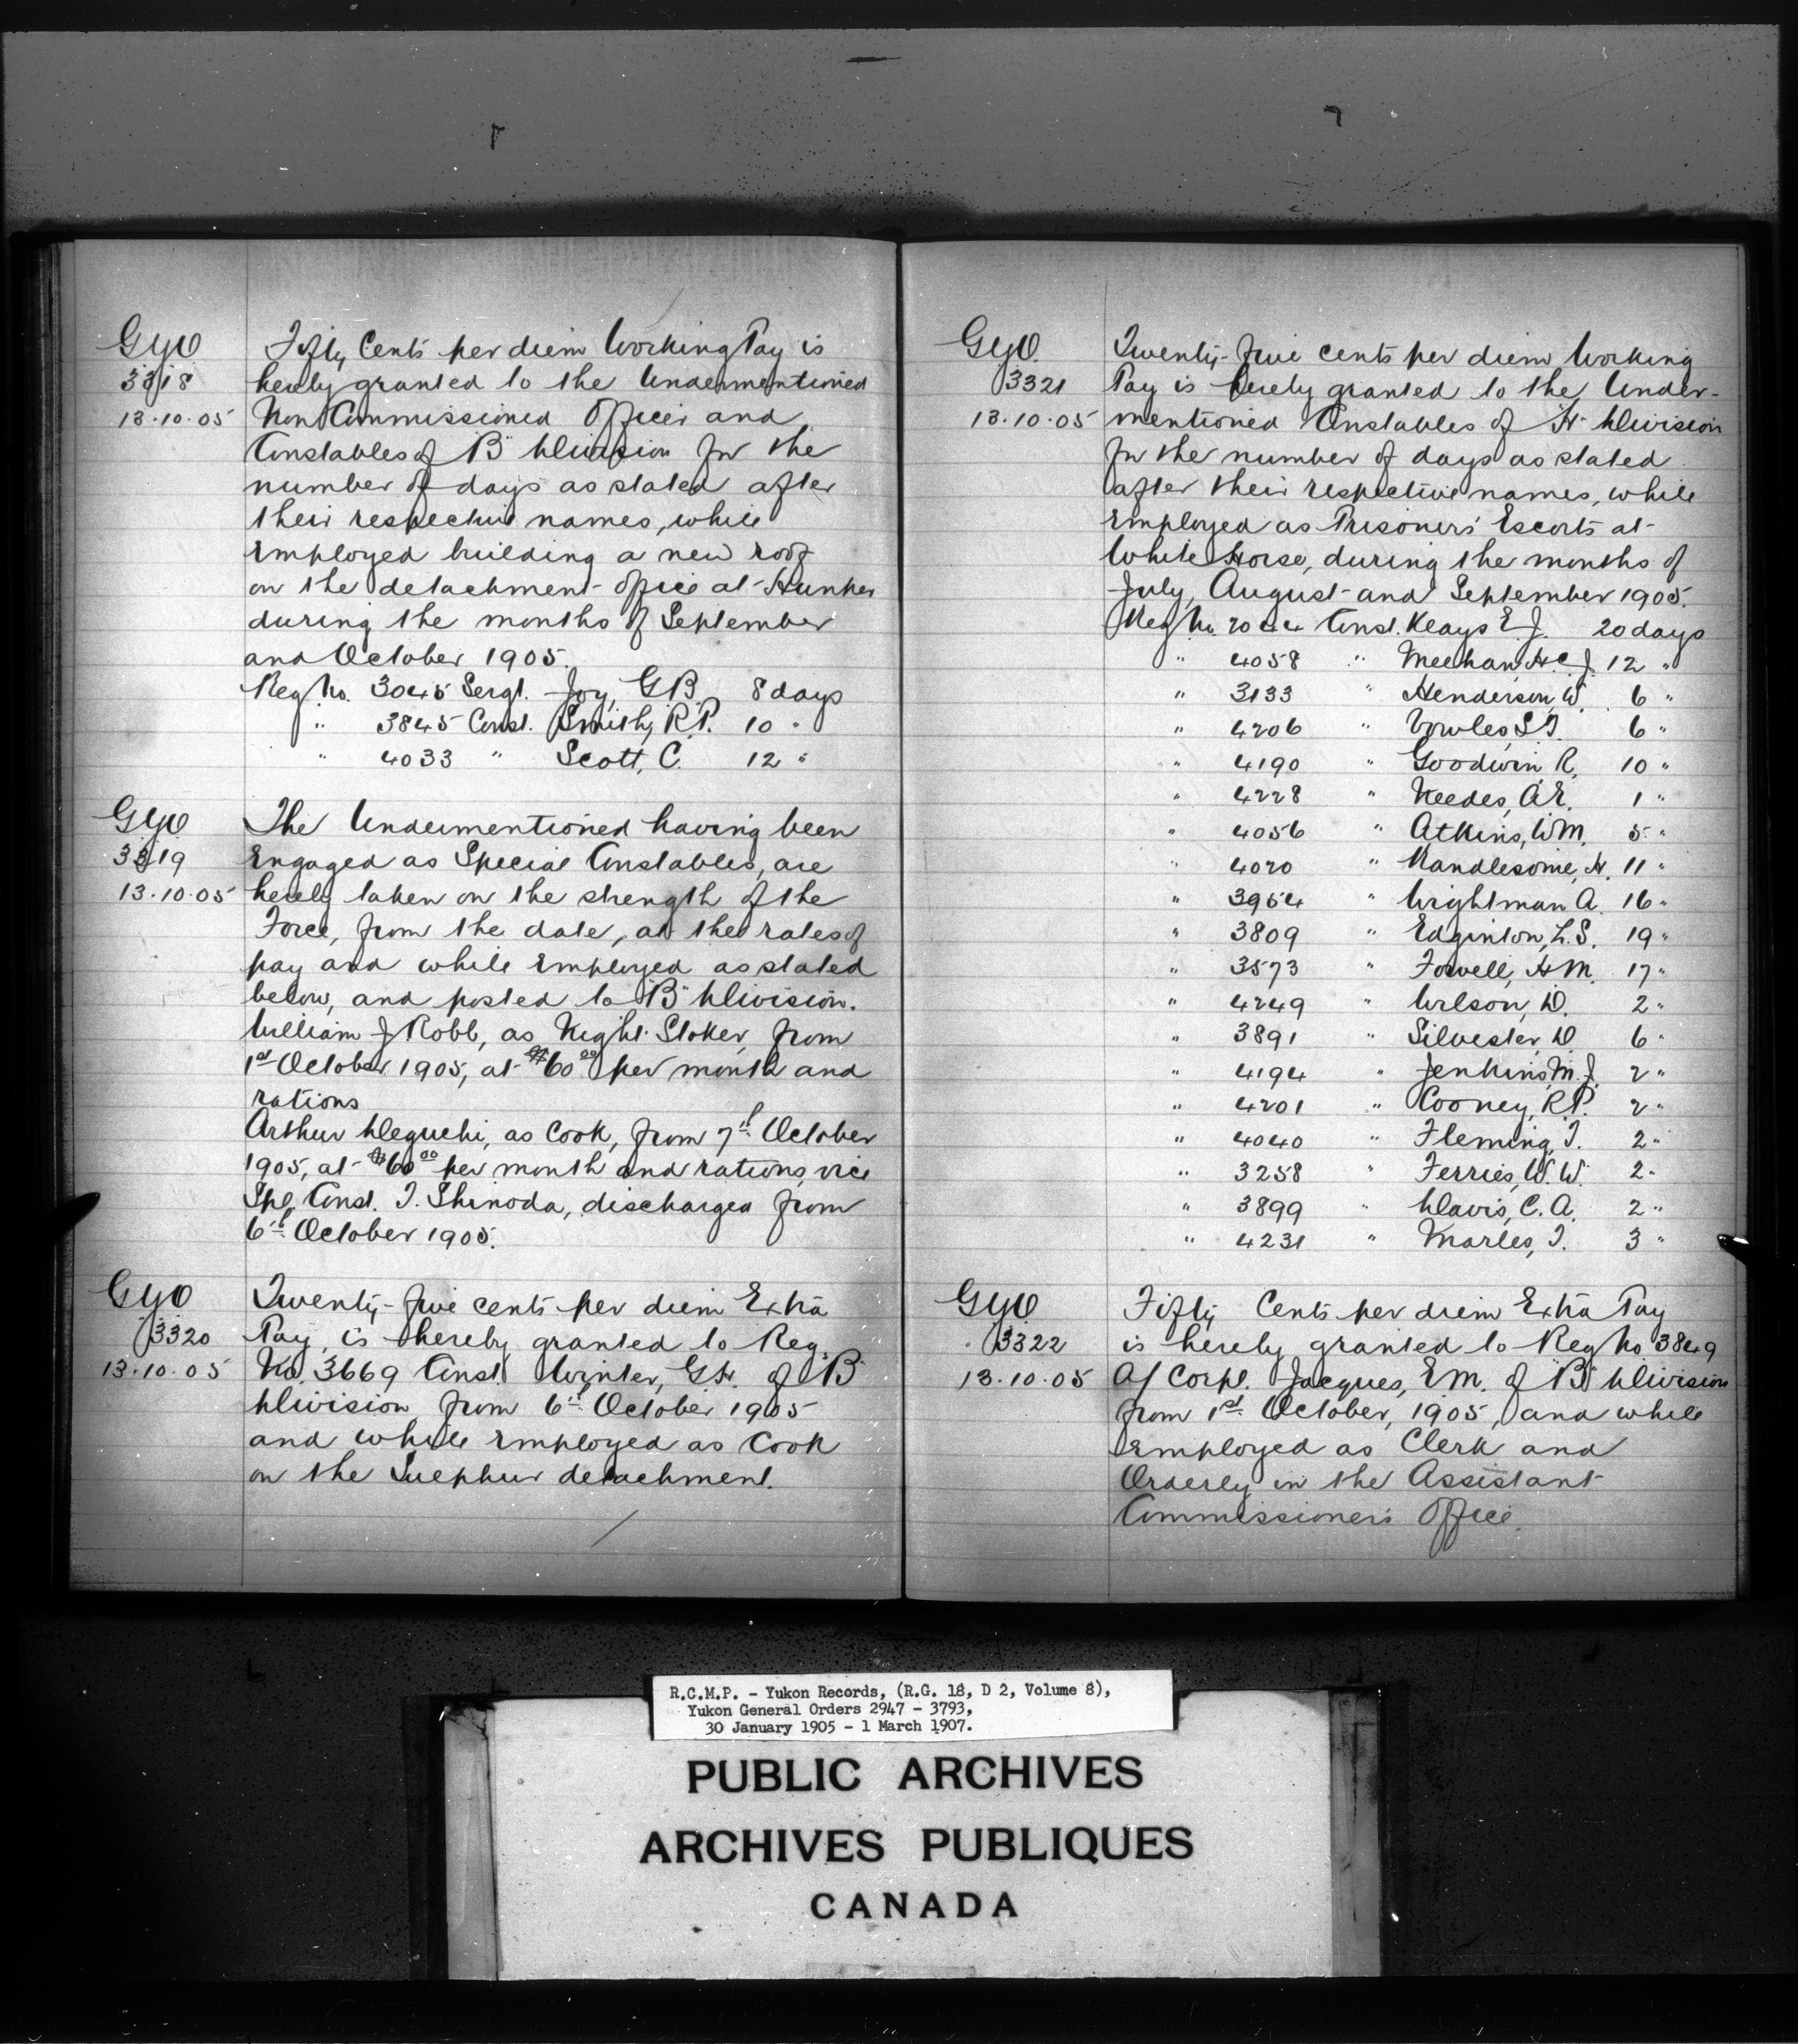 G.Y.O
3318
13.10.05
Fifty Cents per diem Working Pay is
hereby granted to the Undermentioned
Non Commissioned Officer and
Constables of "B" Division for the
number of days as stated after
their respective names, while
employed building a new roof
on the detachment office at Hunker
during the months of September
and October 1905.
Reg No. 3045 Sergt. Joy, G.B. 8 days
" 3845 Const. Smith, R.P. 10 "
" 4033 " Scott, C. 12 "
G.Y.O
3319
13.10.05
The Undermentioned having been
Engaged as Special Constables, are
hereby taken on the strength of the
Force, from the date, at the rates of
pay and while employed as stated
below, and posted to "B" Division.
William J Robb, as Night Stoker, from
1st October 1905, at $60.00 per month and
rations
Arthur Deguchi, as Cook, from 7th October
1905, at $60.00 per month and rations, vice
Spl. Const. T. Shinoda, discharged from
6th October 1905.
G.Y.O
3320
13.10.05
Twenty-five cents per diem Extra
Pay, is hereby granted to Reg.
No. 3669 Const. Winter, G.H. of "B"
Division from 6th October 1905
and while employed as Cook
on the Sulphur detachment.
G.Y.O.
3321
13.10.05
Twenty-five cents per diem Working
Pay is hereby granted to the Under-
mentioned Constables of "H" Division
for the number of days as stated
after their respective names, while
employed as Prisoners' Escorts at
White Horse, during the months of
July, August and September 1905.
Reg No. 2044 Const. Keays E.J. 20 days
" 4058 " Meehan, H.C.J. 12 "
" 3133 " Henderson, W. 6 "
" 4206 " Vowles, S.T. 6 "
" 4190 " Goodwin, R. 10 "
" 4228 " Needes, A.E. 1 "
" 4056 " Atkins, W.M. 5 "
" 4020 " Handlesome, H. 11 "
" 3954 " Wrightman A. 16 "
" 3809 " Edginton, L.S. 19 "
" 3573 " Fowell, H.M. 17 "
" 4249 " Wilson, D. 2 "
" 3891 " Silvester, D. 6 "
" 4194 " Jenkins, M.J. 2 "
" 4201 " Cooney, R.P. 2 "
" 4040 " Fleming, T. 2 "
" 3258 " Ferries, W.W. 2 "
" 3899 " Davis, C.A. 2 "
" 4231 " Marles, T. 3 "
G.Y.O
3322
13.10.05
Fifty Cents per diem Extra Pay
is hereby granted to Reg No 3849
A/ Corpl. Jacques, E.M. of "B" Division
from 1st October, 1905, and while
employed as Clerk and
Orderly in the Assistant
Commissioner's Office.
R.C.M.P. - Yukon Records, (R.G. 18, D 2, Volume 8),
Yukon General Orders 2947 - 3793,
30 January 1905 - 1 March 1907.
PUBLIC ARCHIVES
ARCHIVES PUBLIQUES
CANADA